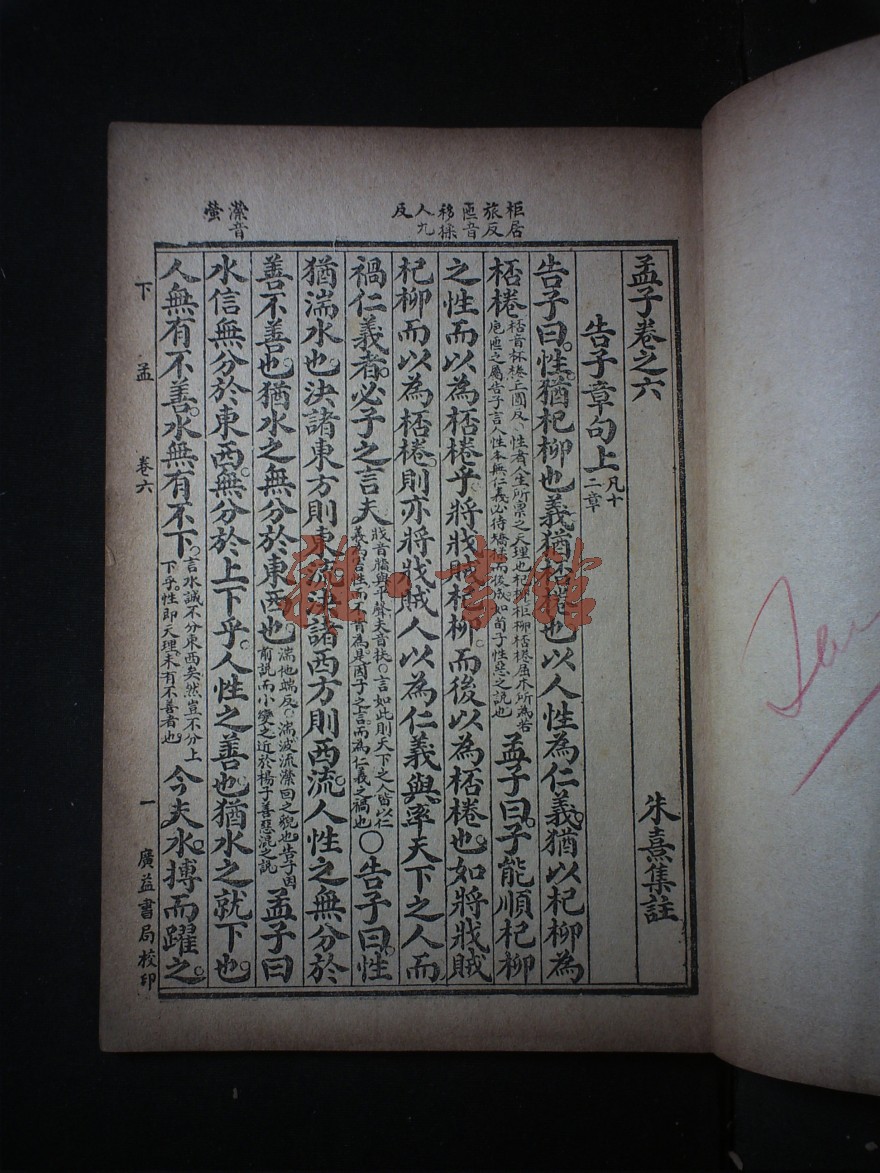 柜居
旅反
匜音
移揉
人九
反
瀠音
螢
孟子卷之六
朱熹集註
告子章句上凡十二章
告子曰性猶杞柳也義猶桮棬也以人性為仁義猶以杞柳為
桮棬桮音杯棬丘圓反○性者人生所稟之天理也杞柳柜柳桮棬屈木所為若巵匜之屬告子言人性本無仁義必待矯揉而後成如荀子性惡之說也孟子曰子能順杞柳
之性而以為桮棬乎將戕賊杞柳而後以為桮棬也如將戕賊
杞柳而以為桮棬則亦將戕賊人以為仁義與率天下之人而
禍仁義者必子之言夫戕音牆與平聲夫音扶○言如此則天下之人皆以仁義為害性而不肯為是因子之言而為仁義之禍也○告子曰性
猶湍水也決諸東方則東流決諸西方則西流人性之無分於
善不善也猶水之無分於東西也湍他端反○湍波流瀠回之貌也告子因前說而小變之近於楊子善惡混之說孟子曰
水信無分於東西無分於上下乎人性之善也猶水之就下也
人無有不善水無有不下言水誠不分東西矣然豈不分上下乎性即天理未有不善者也今夫水搏而躍之
下孟 卷六 一 廣益書局校印
雜·書館